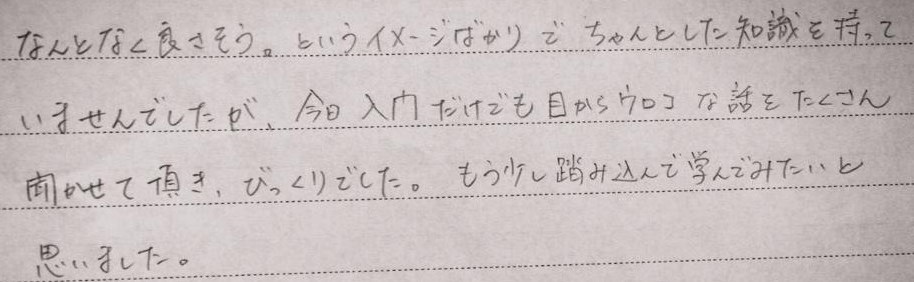 なんとなく良さそう。というイメージばかりで ちゃんとした知識を持って
いませんでしたが、今日 入門だけでも目からウロコ な話をたくさん
聞かせて頂き、びっくりでした。 もう少し踏み込んで学んでみたいと
思いました。